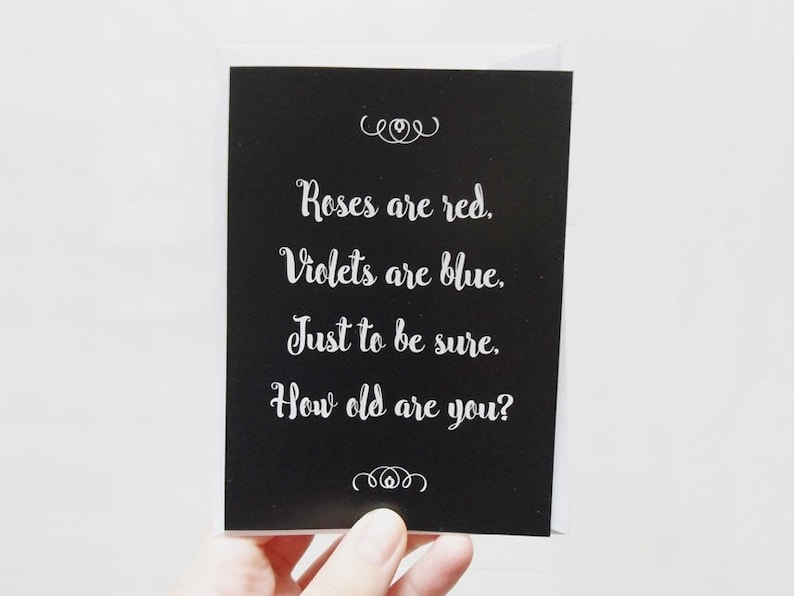 Roses are red,
Violets are blue,
Just to be sure,
How old are you?